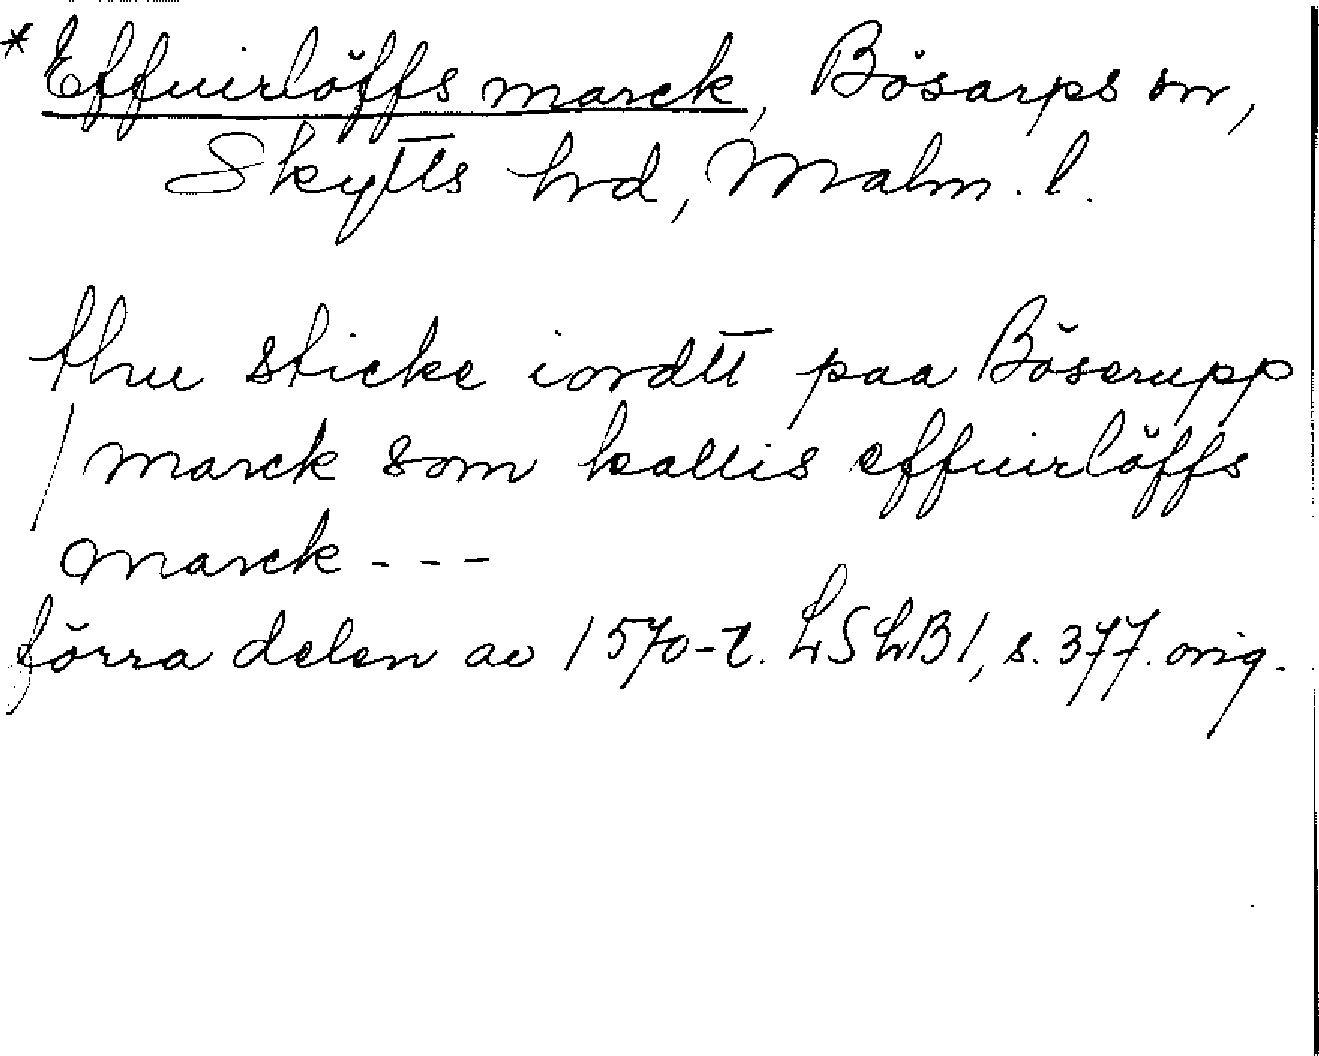 * Effuirlöffs marck, Bösarps sn,
Skytts hrd, Malm. l.
thu sticke iordtt paa Böserupp
/ marck som kallis effuirlöffs
marck - - -
förra delen av 1570-t. LSLB1, s. 377. orig.